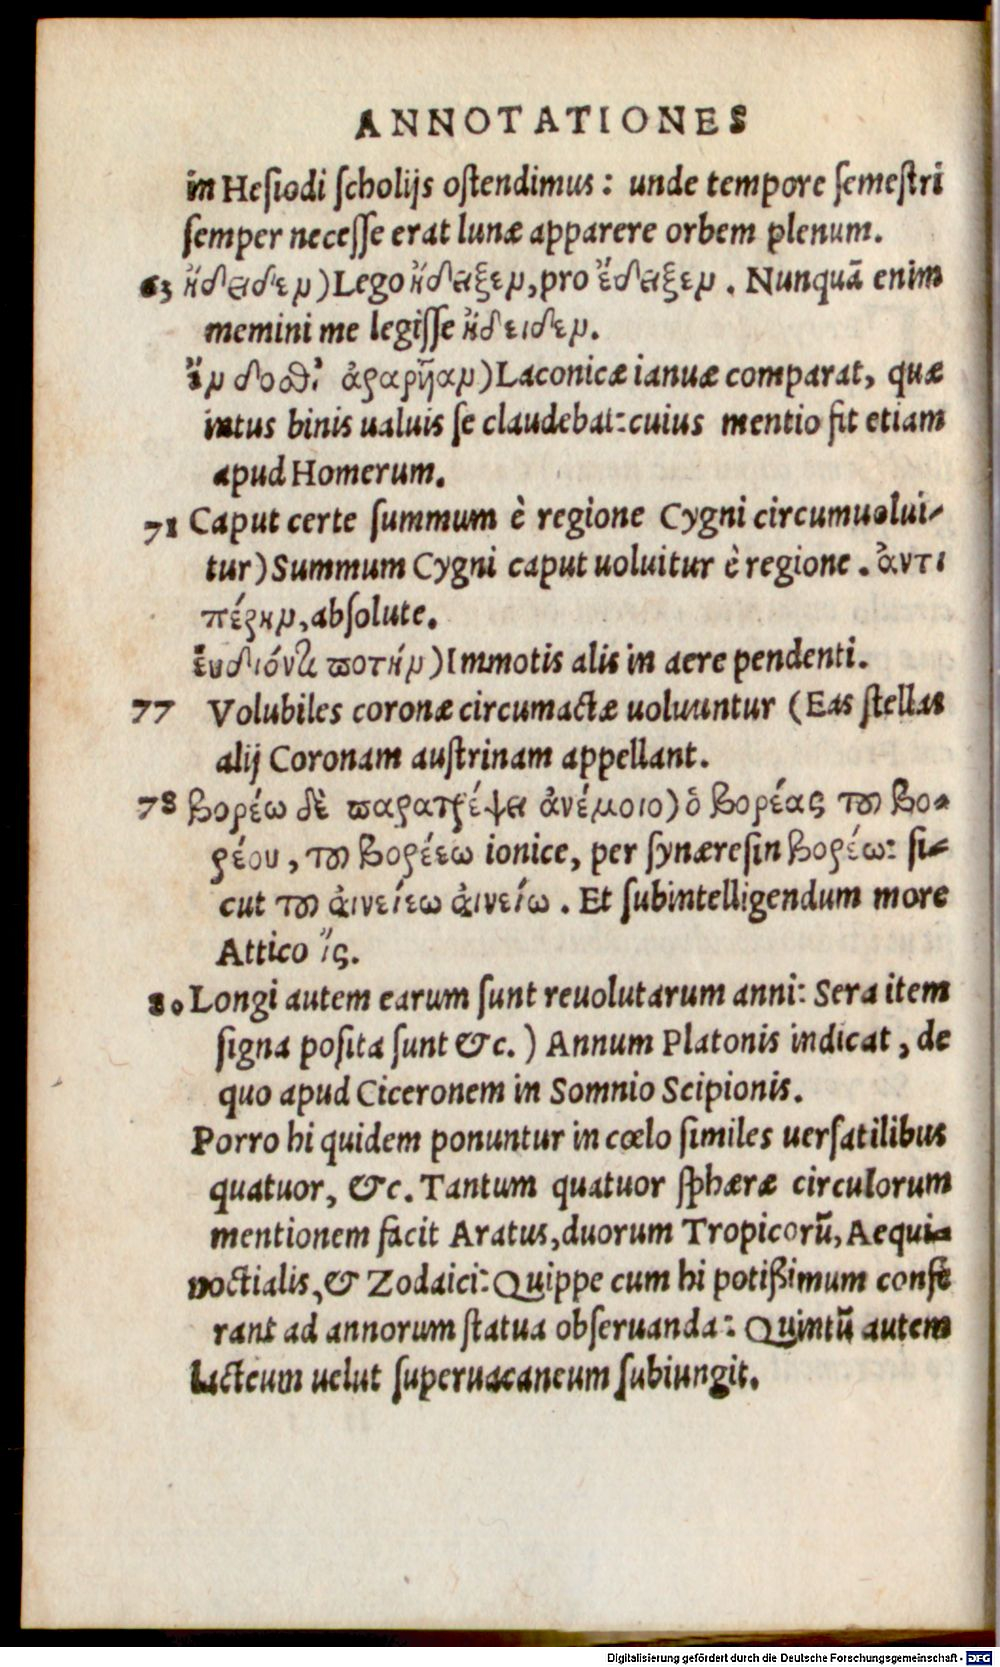 ANNOTATIONES
in Hesiodi scholijs ostendimus: unde tempore semestri
semper necesse erat lunæ apparere orbem plenum.
63 ἤδειδεν) Lego ἤδειξεν, pro ἔδειξεν. Nunquā enim
memini me legisse ἤδειδεν.
ἲν δοθ᾽ ἀραρῆαν) Laconicæ ianuæ comparat, quæ
intus binis ualuis se claudebat: cuius mentio fit etiam
apud Homerum.
71 Caput certe summum è regione Cygni circumuolui-
tur) Summum Cygni caput uoluitur è regione. ἀντι
πέρην, absolute.
ἐυδιόωντι ποτὴν) Immotis alis in aere pendenti.
77 Volubiles coronæ circumactæ uoluuntur (Eas stellas
alij Coronam austrinam appellant.
78 Βορέω δὲ παρατρέψει ἀνέμοιο) ὁ Βορέας τοῦ Βο-
ρέου, τοῦ Βορέεω ionice, per synæresin Βορέω: si-
cut τοῦ αἰνείεω αἰνείω. Et subintelligendum more
Attico ἴς.
80 Longi autem earum sunt reuolutarum anni: Sera item
signa posita sunt &c.) Annum Platonis indicat, de
quo apud Ciceronem in Somnio Scipionis.
Porro hi quidem ponuntur in cœlo similes uersatilibus
quatuor, &c. Tantum quatuor sphæræ circulorum
mentionem facit Aratus, duorum Tropicorū, Aequi-
noctialis, & Zodaici: Quippe cum hi potißimum confe
rant ad annorum statua obseruanda: Quintū autem
lacteum uelut superuacaneum subiungit.
Digitalisierung gefördert durch die Deutsche Forschungsgemeinschaft - DFG